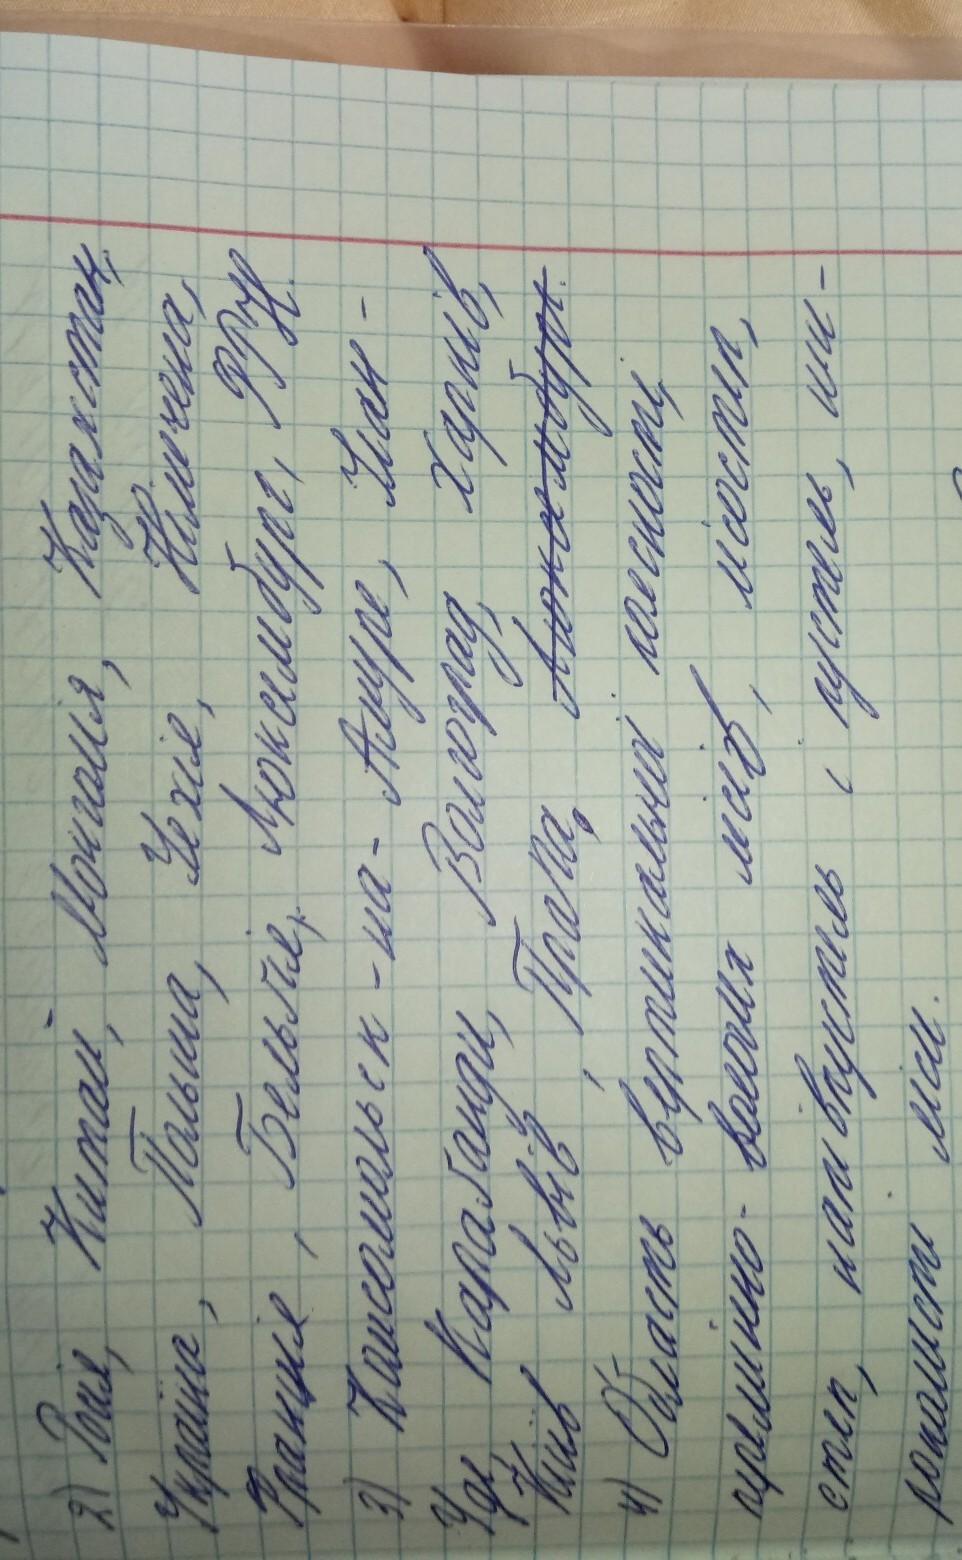 2) Росія, Китай, Монголія, Казахстан,
Україна, Польща, Чехія, Німеччина,
Франція, Бельгія, Люксембург, ФРН.
3) Комсомольск-на-Амуре, Улан-
Уде, Карабанди, Волгоград, Харків,
Київ Львів, Прага, Люксембург.
4) Область вертикальної поясності,
мішаних лісів, лісостеп,
степ, напівпустель і пустель, ши-
роколисті ліси.